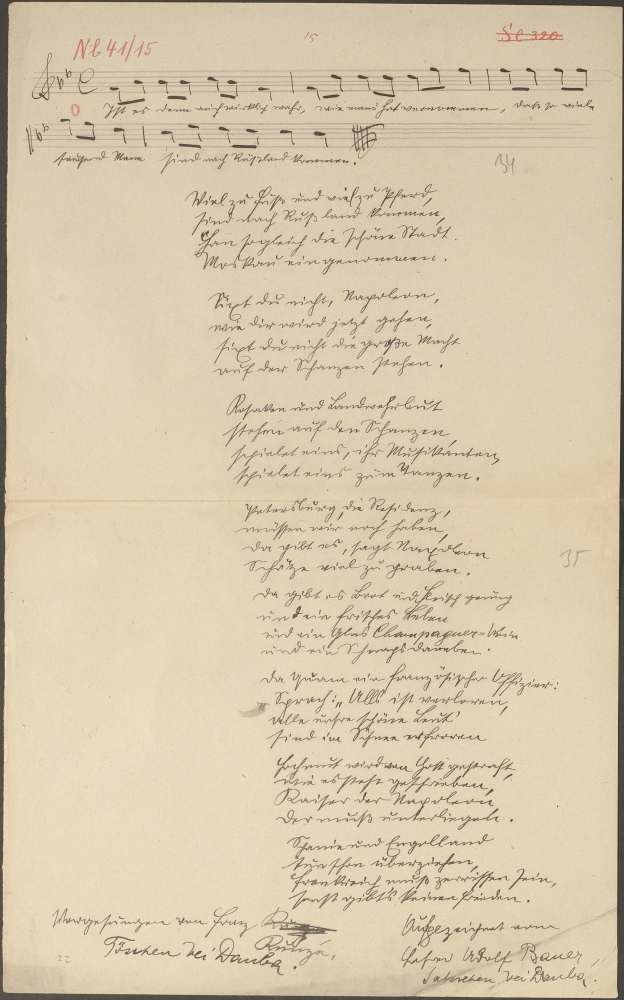 Nb 41/15
15
Se 320
O
Ist es denn auch wirklich wahr, wie man's hat vernommen, daß so viele
tausend Mann sind nach Rußland kommen.
34
Viel zu Fuß und viel zu Pferd,
sind nach Rußland kommen,
han sogleich die schöne Stadt
Moskau eingenommen.
Sixt du nicht, Napoleon,
wie dir wird jetzt gehen,
sixt du nicht die große Macht
auf der Schanzen stehen.
Kosaken und Landwehrleut
stehen auf den Schanzen,
spielet eins, ihr Musikanten,
spielet eins zum Tanzen.
Petersburg, die Residenz,
müssen wir noch haben,
da gibt es, sagt Napoleon
Schätze viel zu graben.
35
Da gibt es Brot und Fleisch genug
und ein frisches Leben
und ein Glas Champagner-Wein
und ein Schnaps daneben.
Da kam ein französischer Offizier:
Sprach: „Alls ist verloren,
alle unsre schöne Leut'
sind im Schnee erfroren
Hochmut wird von Gott gestraft,
wie es steht geschrieben,
Kaiser der Napoleon
der muß unterliegen.
Spanie und Engelland
tun schon überziehen,
Frankreich muß zerrissen sein,
sonst gibt's keinen Frieden.
Vorgesungen von Franz
Kunza,
bei Dauba.
Aufgezeichnet vom
Lehrer Adolf Bauer,
bei Dauba.
22